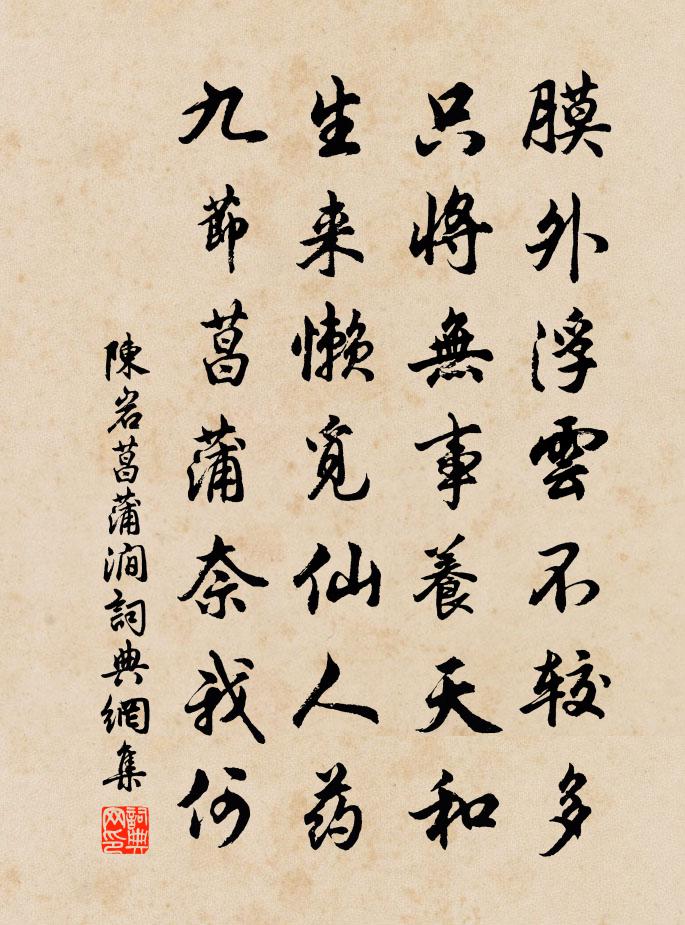 膜外浮雲不较多
只將無事養天和
生来懒觅仙人药
九節菖蒲奈我何
陳岩菖蒲澗詞典網集
詞典网印